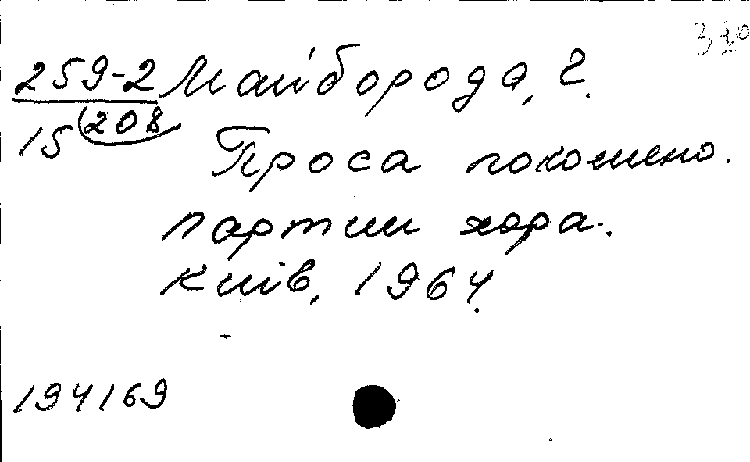 259-2 Майборода, Г.
15 (208
Проса покошено.
партии хора.
Київ, 1964.
194169